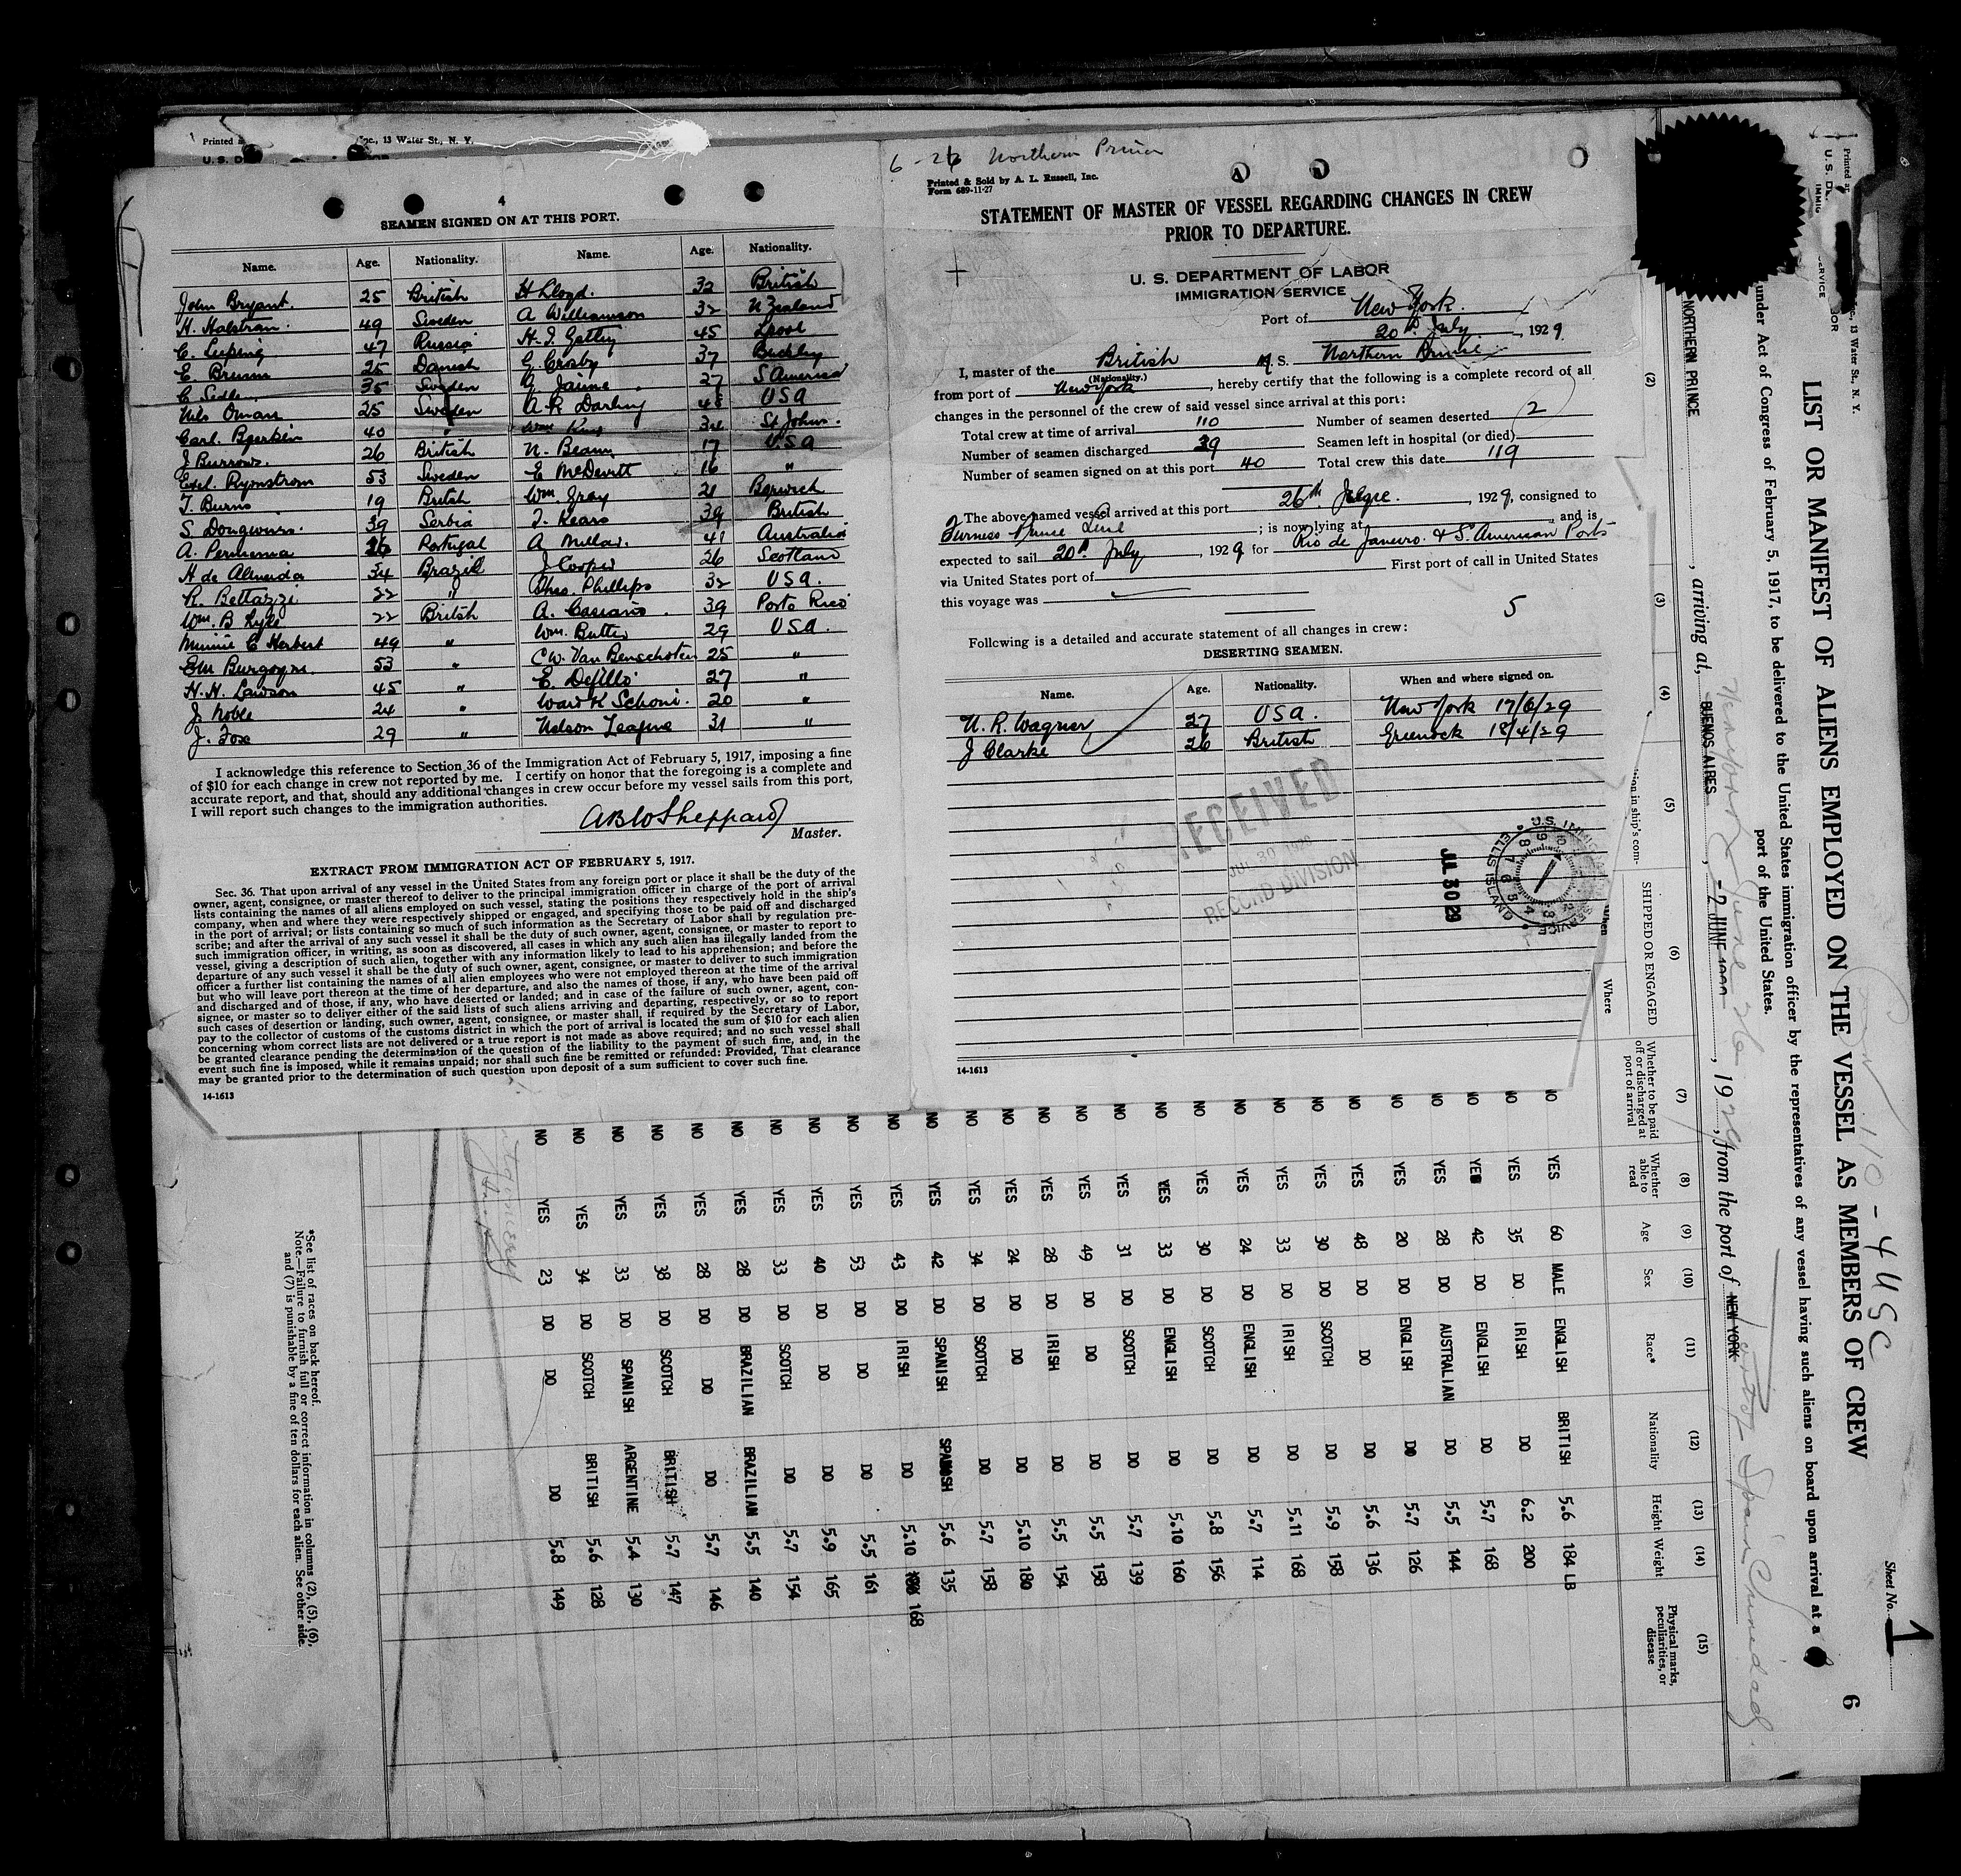 Printed &
Inc., 13 Water St., N. Y.
4
SEAMEN SIGNED ON AT THIS PORT.
Name. Age. Nationality. Name. Age. Nationality.
John Bryant. 25 British H Lloyd. 32 British
H. Halstran. 49 Sweden A Williamson 32 N Zealand
C. 47 Russia H. I. Gattey 45 Lpool
E Bruun 25 Danish G. Crosby 37 Buckley
C Sedler 35 Sweden G Jaime. 27 S America
Nils Oman 25 Sweden A R Darling 48 USA
Carl. 40 " Wm King 34 St Johns.
J Burrows. 26 British N. Beam 17 USA
Exel. Rynstrom 53 Sweden E McDevitt 16 "
T. Burns 19 British Wm. Gray 21 Berwick
S 39 Serbia T. Kears 39 British
A. Portugal A Millar. 41 Australia
H de Almeida 34 Brazil J Cooper 26 Scotland
R. Bettazzi 22 " Chas. Phillips 32 USA.
Wm. B Lyle 22 British A. Casiano. 39 Porto Rico
Minnie C Herbert 49 " Wm. Butler 29 USA.
EM Burgoyne. 53 " C W. Van Benschoten 25 "
H. H. Lawson 45 " E. Defillo 27 "
J. Noble 24 " Ward K Schoni. 20 "
J. Fox 29 " Nelson Teague 31 "
I acknowledge this reference to Section 36 of the Immigration Act of February 5, 1917, imposing a fine
of $10 for each change in crew not reported by me. I certify on honor that the foregoing is a complete and
accurate report, and that, should any additional changes in crew occur before my vessel sails from this port,
I will report such changes to the immigration authorities.
ABWSheppard
Master.
EXTRACT FROM IMMIGRATION ACT OF FEBRUARY 5, 1917.
Sec. 36. That upon arrival of any vessel in the United States from any foreign port or place it shall be the duty of the
owner, agent, consignee, or master thereof to deliver to the principal immigration officer in charge of the port of arrival
lists containing the names of all aliens employed on such vessel, stating the positions they respectively hold in the ship's
company, when and where they were respectively shipped or engaged, and specifying those to be paid off and discharged
in the port of arrival; or lists containing so much of such information as the Secretary of Labor shall by regulation pre-
scribe; and after the arrival of any such vessel it shall be the duty of such owner, agent, consignee, or master to report to
such immigration officer, in writing, as soon as discovered, all cases in which any such alien has illegally landed from the
vessel, giving a description of such alien, together with any information likely to lead to his apprehension; and before the
departure of any such vessel it shall be the duty of such owner, agent, consignee, or master to deliver to such immigration
officer a further list containing the names of all alien employees who were not employed thereon at the time of the arrival
but who will leave port thereon at the time of her departure, and also the names of those, if any, who have been paid off
and discharged and of those, if any, who have deserted or landed; and in case of the failure of such owner, agent, con-
signee, or master so to deliver either of the said lists of such aliens arriving and departing, respectively, or so to report
such cases of desertion or landing, such owner, agent, consignee, or master shall, if required by the Secretary of Labor,
pay to the collector of customs of the customs district in which the port of arrival is located the sum of $10 for each alien
concerning whom correct lists are not delivered or a true report is not made as above required; and no such vessel shall
be granted clearance pending the determination of the question of the liability to the payment of such fine, and, in the
event such fine is imposed, while it remains unpaid; nor shall such fine be remitted or refunded: Provided, That clearance
may be granted prior to the determination of such question upon deposit of a sum sufficient to cover such fine.
14-1613
6-26 Northern Prince
Printed & Sold by A. L. Russell, Inc.
Form 689-11-27
STATEMENT OF MASTER OF VESSEL REGARDING CHANGES IN CREW
PRIOR TO DEPARTURE.
U. S. DEPARTMENT OF LABOR
IMMIGRATION SERVICE
Port of New York.
20th July, 1929
I, master of the British M. S. Northern Prince
(Nationality.)
from port of New York, hereby certify that the following is a complete record of all
changes in the personnel of the crew of said vessel since arrival at this port:
Total crew at time of arrival 110 Number of seamen deserted 2
Number of seamen discharged 39 Seamen left in hospital (or died)
Number of seamen signed on at this port 40 Total crew this date 119
The above named vessel arrived at this port 26th, 1929, consigned to
Furness Prince Line; is now lying at and is
expected to sail 20th July, 1929 for Rio de Janeiro. & S. American Ports
via United States port of First port of call in United States
this voyage was
5
Following is a detailed and accurate statement of all changes in crew:
DESERTING SEAMEN.
Name. Age. Nationality. When and where signed on.
N. R. Wagner 27 USA. New York 17/6/29
J Clarke 26 British Greenock 18/4/29
RECEIVED
JUL 30 1929
RECORD DIVISION
JUL 30 29
U.S. IMMIGRATION SERVICE
ELLIS ISLAND
14-1613
Sheet No. 1
6
110 - 4 USC
LIST OR MANIFEST OF ALIENS EMPLOYED ON THE VESSEL AS MEMBERS OF CREW
under Act of Congress of February 5, 1917, to be delivered to the United States immigration officer by the representatives of any vessel having such aliens on board upon arrival at a
port of the United States.
NORTHERN PRINCE, arriving at BUENOS AIRES, -2 JUNE, 1929, from the port of NEW YORK
New York June 26
Port of Spain Trinidad
(2) (3) (4) (5) (6) (7) (8) (9) (10) (11) (12) (13) (14) (15)
tion in ship's com-
SHIPPED OR ENGAGED
When Where
Whether to be paid off or discharged at port of arrival
Whether able to read
Age Sex Race* Nationality Height Weight
Physical marks, peculiarities, or disease
NO YES 60 MALE ENGLISH BRITISH 5.6 184 LB
NO YES 35 DO IRISH DO 6.2 200
NO YES 42 DO ENGLISH DO 5.7 168
NO YES 28 DO AUSTRALIAN DO 5.5 144
NO YES 20 DO ENGLISH DO 5.7 126
NO YES 48 DO DO DO 5.6 136
NO YES 30 DO SCOTCH DO 5.9 158
NO YES 33 DO IRISH DO 5.11 168
NO YES 24 DO ENGLISH DO 5.7 114
NO YES 30 DO SCOTCH DO 5.8 156
NO YES 33 DO ENGLISH DO 5.10 160
NO YES 31 DO SCOTCH DO 5.7 139
NO YES 49 DO DO DO 5.5 158
NO YES 28 DO IRISH DO 5.5 154
NO YES 24 DO DO DO 5.10 180
NO YES 34 DO SCOTCH DO 5.7 158
NO YES 42 DO SPANISH SPANISH 5.6 135
NO YES 43 DO IRISH DO 5.10 168
NO YES 53 DO DO DO 5.5 161
NO YES 40 DO DO DO 5.9 165
NO YES 33 DO SCOTCH DO 5.7 154
NO YES 28 DO BRAZILIAN BRAZILIAN 5.5 140
NO YES 28 DO DO DO 5.7 146
NO YES 38 DO SCOTCH BRITISH 5.7 147
NO YES 33 DO SPANISH ARGENTINE 5.4 130
NO YES 34 DO SCOTCH BRITISH 5.6 128
NO YES 23 DO DO DO 5.8 149
*See list of races on back hereof.
Note.—Failure to furnish full or correct information in columns (2), (5), (6),
and (7) is punishable by a fine of ten dollars for each alien. See other side.